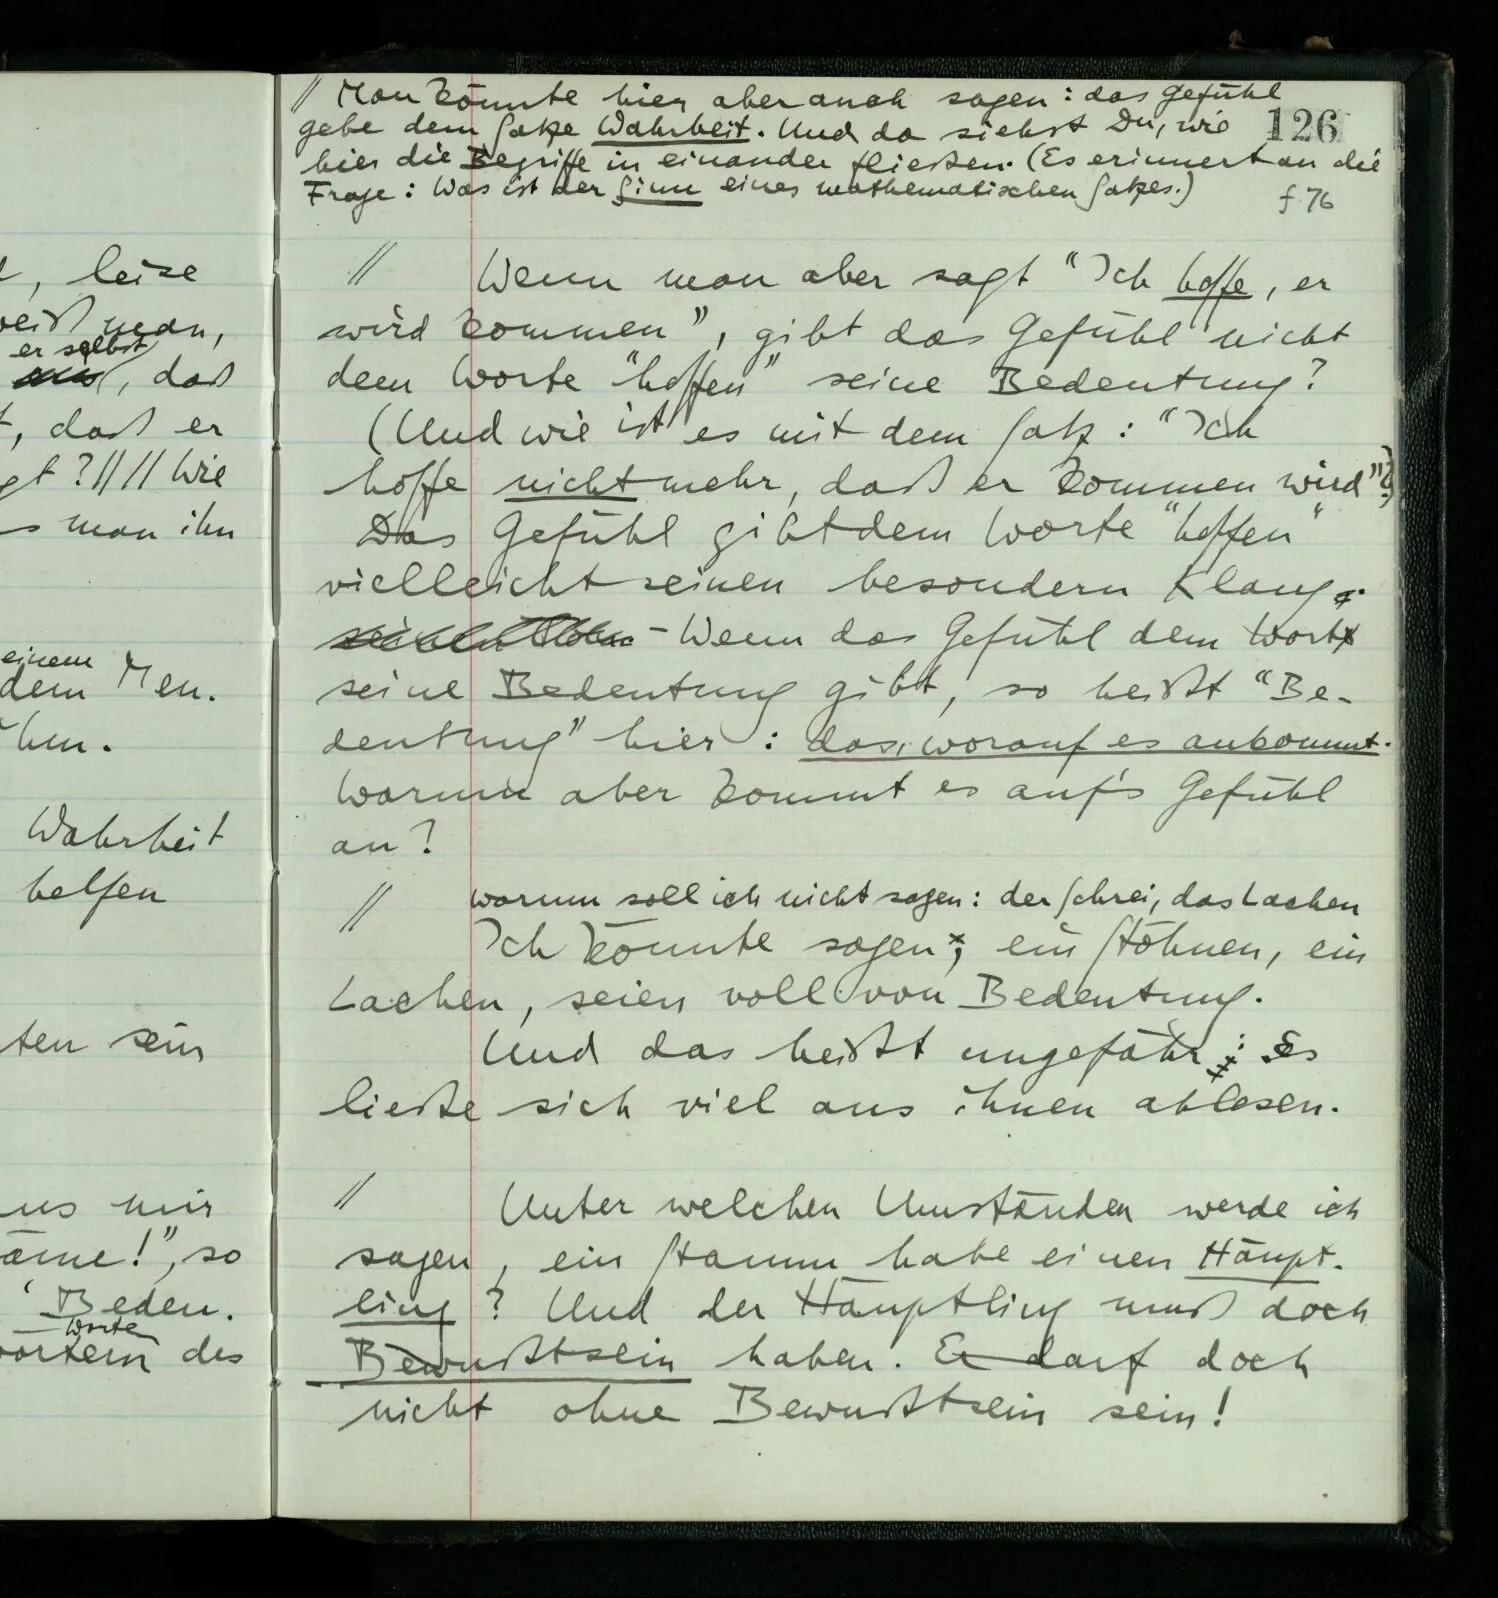 d, leise
weiß man,
er selbst
, daß
t, daß er
gt? // // Wie
s man ihn
einem
dem Men-
hen.
Wahrheit
helfen
ten sein
us mir
äme!", so
Beden-
Worte
wortern des
// Man könnte hier aber auch sagen: das Gefühl
gebe dem Satze Wahrheit. Und da siehst Du, wie
126
hier die Begriffe in einander fließen. (Es erinnert an die
Frage: Was ist der Sinn eines mathematischen Satzes.)
f 76
// Wenn man aber sagt "Ich hoffe, er
wird kommen", gibt das Gefühl nicht
dem Worte "hoffen" seine Bedeutung?
(Und wie ist es mit dem Satz: "Ich
hoffe nicht mehr, daß er kommen wird"?)
Das Gefühl gibt dem Worte "hoffen"
vielleicht seinen besondern Klang.
- Wenn das Gefühl dem Wort
seine Bedeutung gibt, so heißt "Be-
deutung" hier: das, worauf es ankommt.
Warum aber kommt es auf's Gefühl
an?
// warum soll ich nicht sagen: der Schrei, das Lachen
Ich könnte sagen, ein Stöhnen, ein
Lachen, seien voll von Bedeutung.
Und das heißt ungefähr: Es
ließe sich viel aus ihnen ablesen.
// Unter welchen Umständen werde ich
sagen, ein Stamm habe einen Häupt-
ling? Und der Häuptling muß doch
Bewußtsein haben. Er darf doch
nicht ohne Bewußtsein sein!